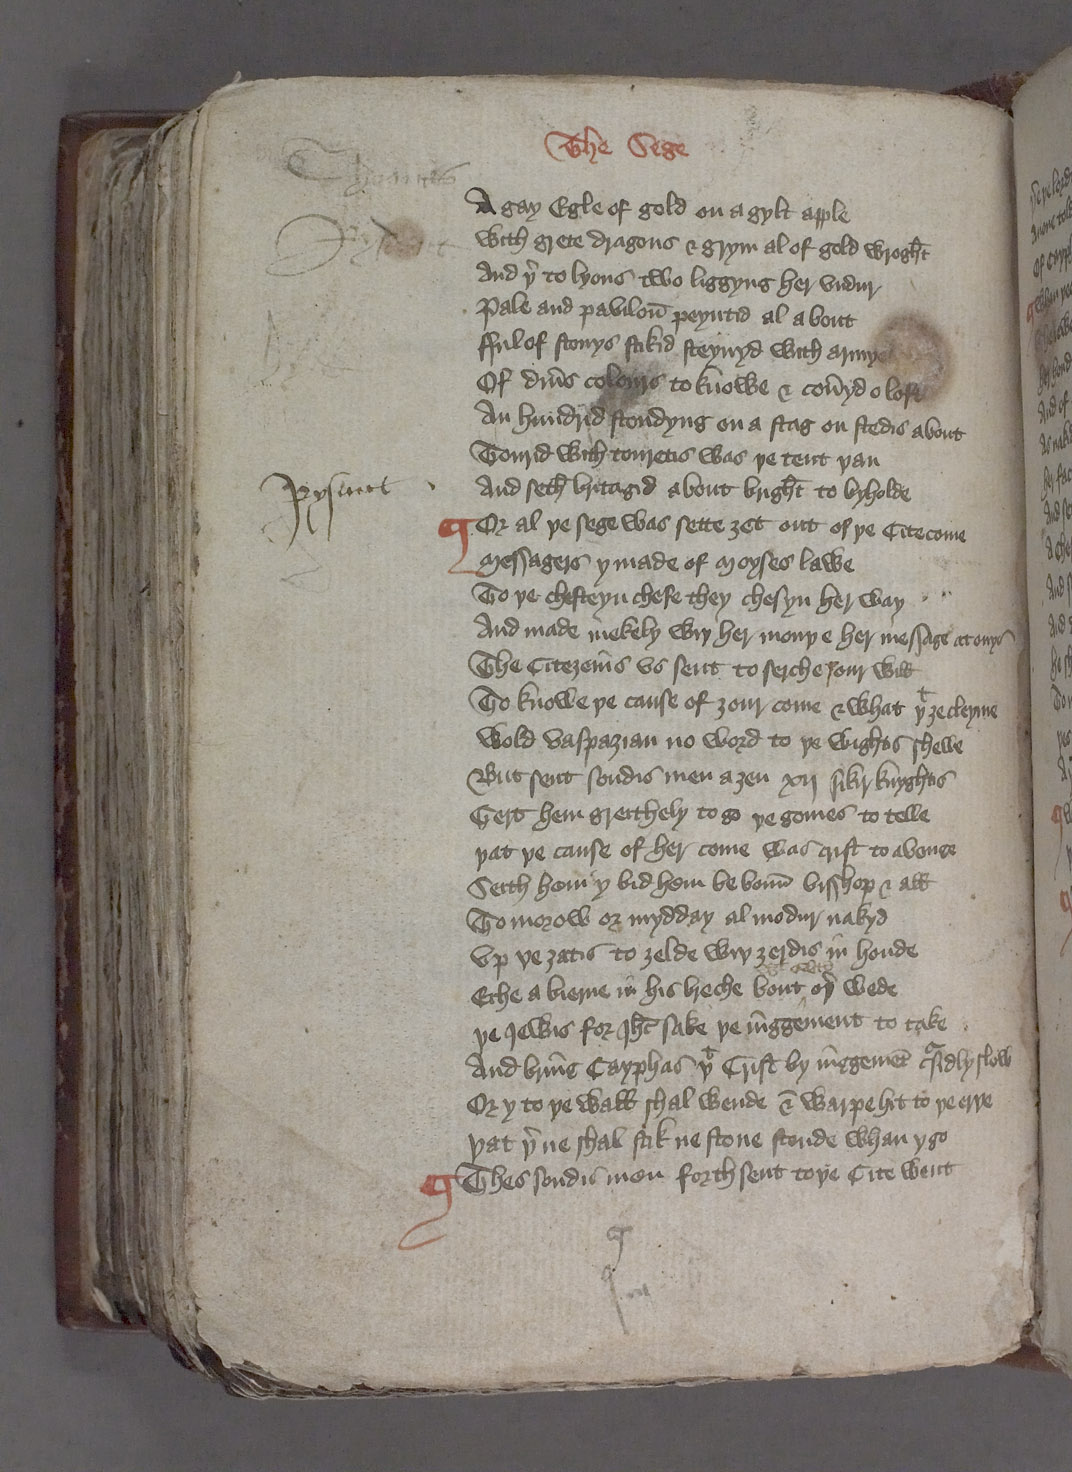 The Sege
A gay Egle of gold on a gylt apple
With grete dragons & grym al of gold wroght
And þer to lyons two liggyng her vndur
Pale and pavilon peyntid al about
fful of stonys stikid steynyd with armye
Of diuers colours to knowe & couryd o loft
An hundrid stondyng on a stag on stedis about
Tourid with touretis was þe tent þan
And seth britagid about bright to byholde
Pysent
Or al þe sege was sette ȝet out of þe Cite come
Messagers y made of Moyses lawe
To þe chefteyn chefe they chesyn her way
And made mekely wiþ her mouþe her message at onys
The Citezeins vs sent to serche ȝour will
To knowe þe cause of ȝour come & what þt ȝe cleyme
Wold Vaspazian no word to þe wightis shewe
But sent sondis men aȝen xij sikir knyghtis
Gert hem greithely to go þe gomes to telle
þat þe cause of her come was crist to avenge
Seith hem y bid hem be boun bisshop & all
To morow or mydday al modur nakyd
Vp þe ȝatis to ȝelde wiþ ȝerdis in honde
Eche a bierne in his breche bout oþer wede
þe Jewis for Jhc sake þe iuggement to take
And bring Cayphas þt Crist by iugement falsly slow
Or y to þe wall shal wende & warpe hit to þe erþe
þat þer ne shal stik ne stone stonde whan y go
Thes sondis men forth sent to þe Cite went